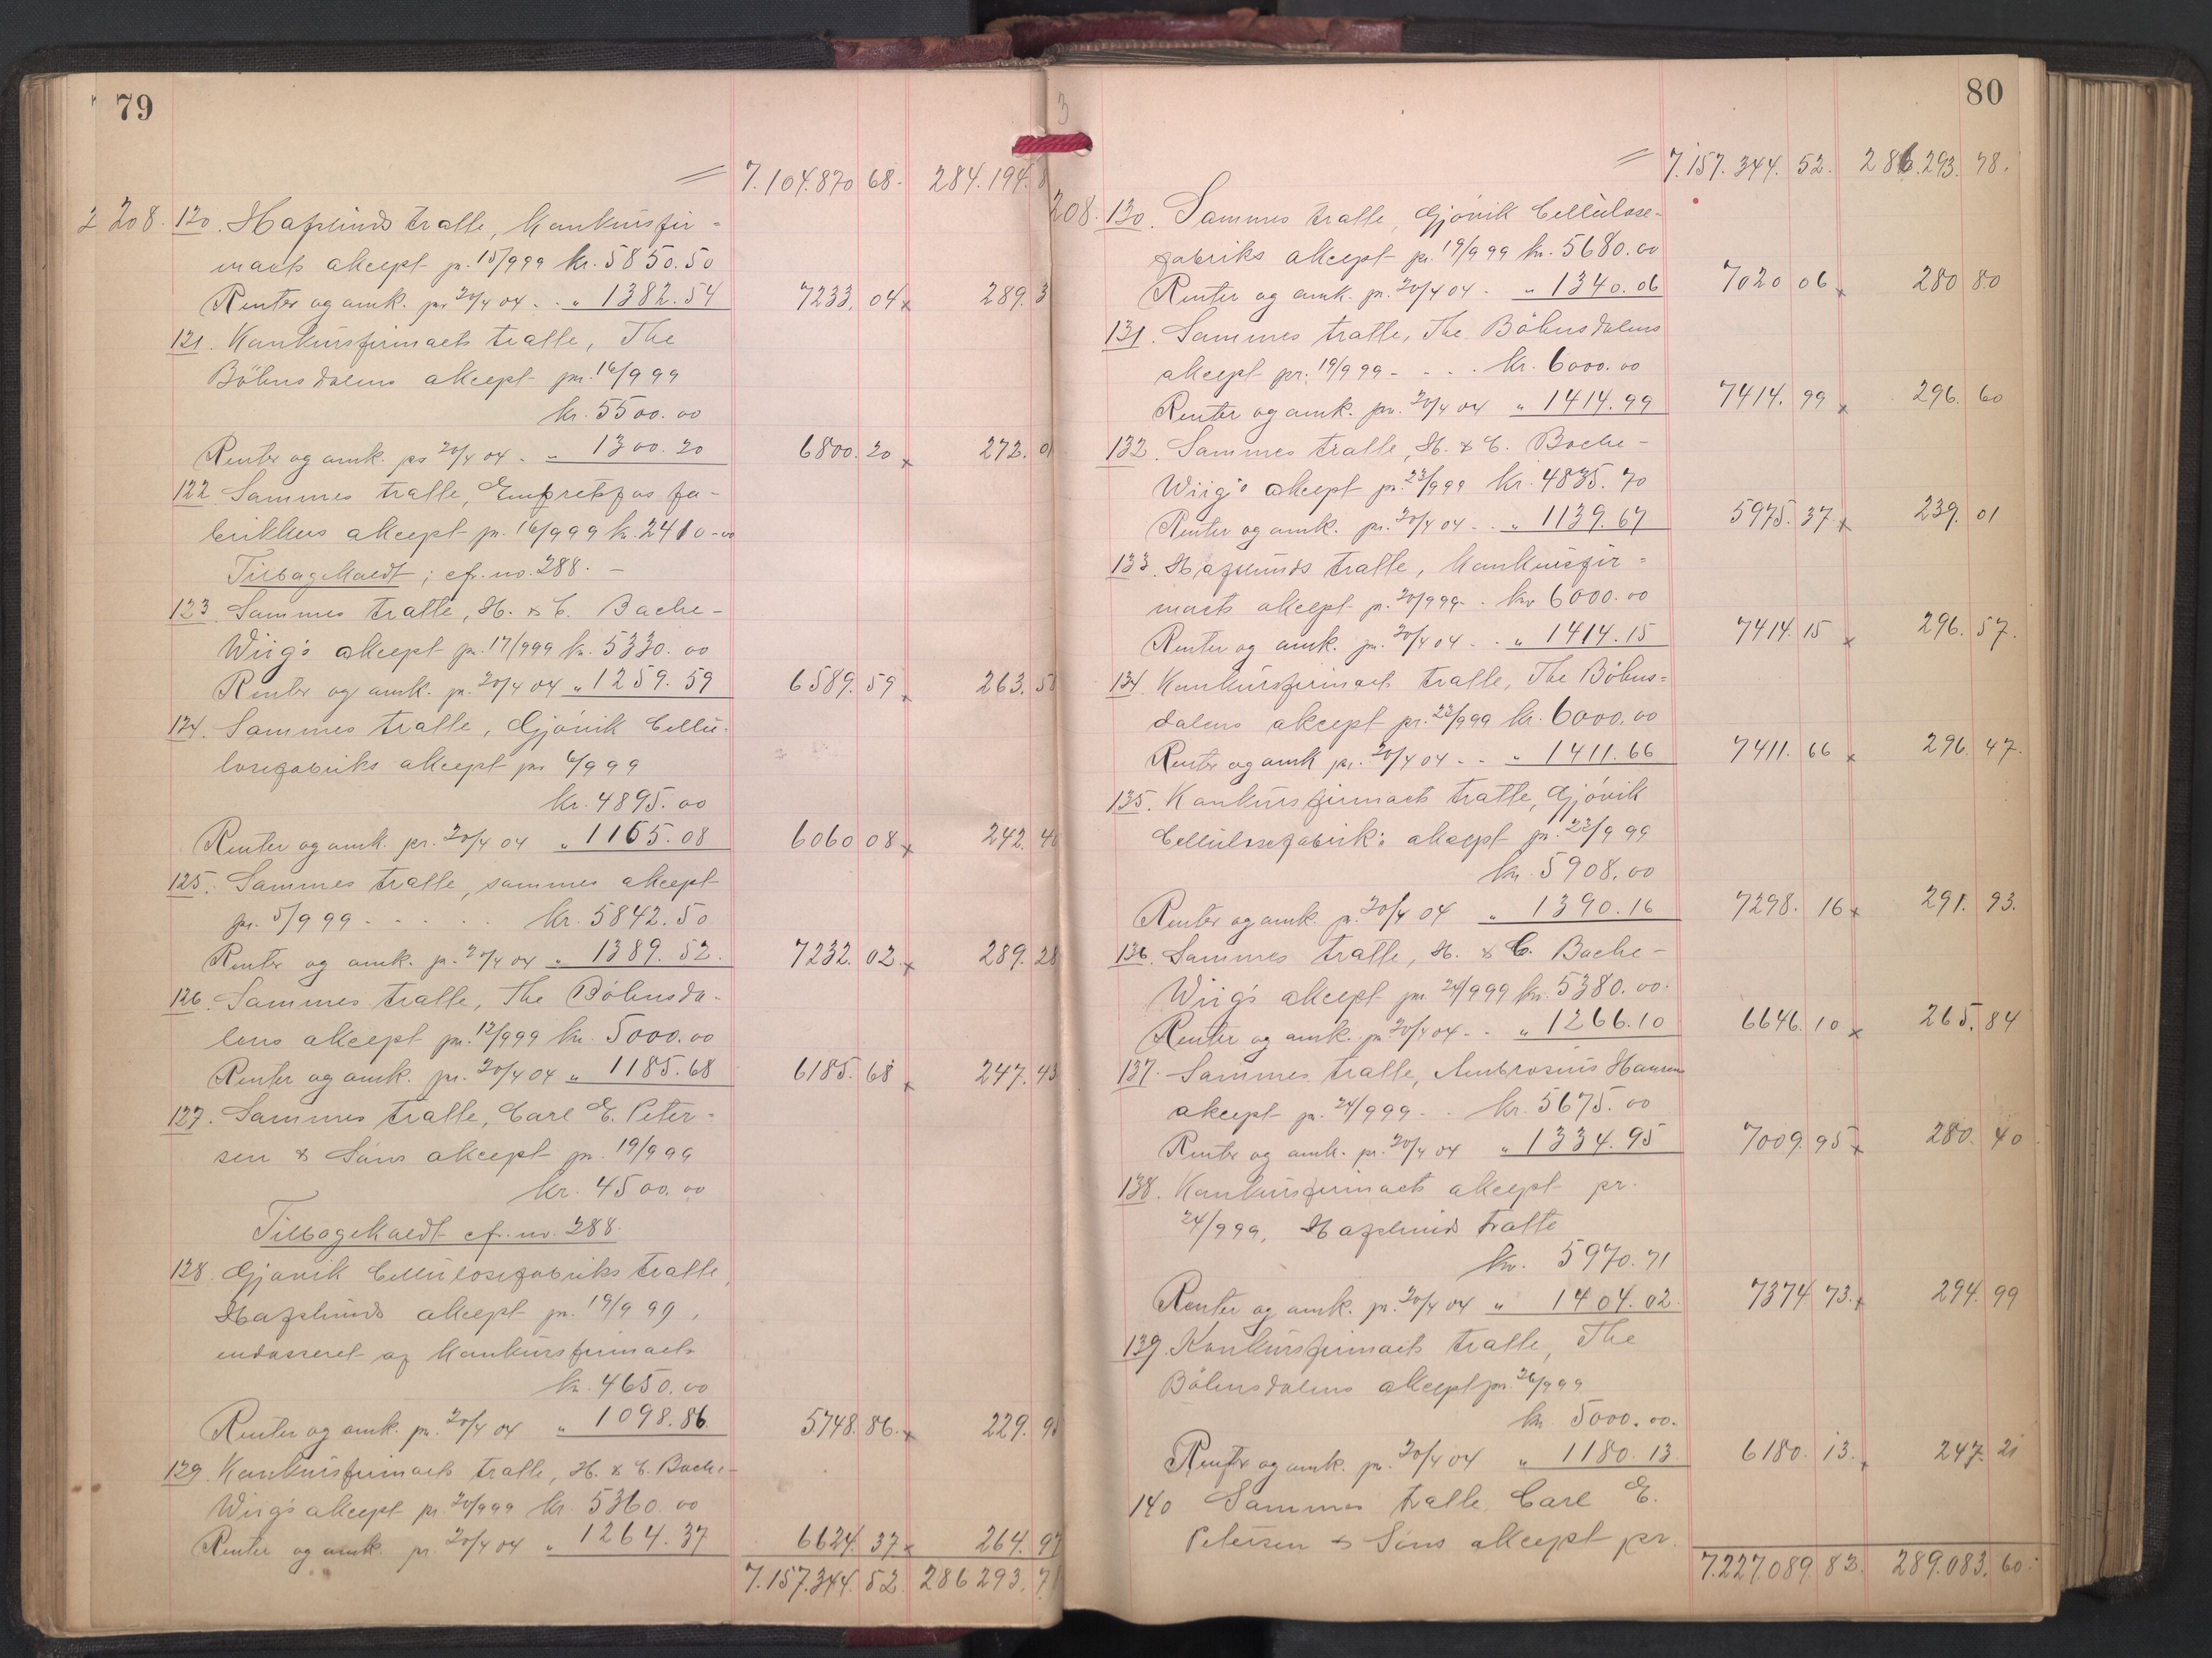 79
= 7.104.870 68. 284.194.8
2 208. 120. Hafslunds tratte, Konkursfir=
maets aksept pr. 15/9 99 kr. 5850.50
Renter og omk. pr. 20/4 04 . . " 1382.54 7233.04 x 289.3
121. Konkursfirmaets tratte, The
Böhnsdalens aksept pr. 16/9 99
kr. 5500.00
Renter og omk. pr 20/4 04 . " 1300.20 6800.20 x 272.01
122. Sammes tratte, Embretsfos fa-
brikkers aksept pr. 16/9 99 kr. 2410.00
Tilbagekaldt; cfr. no. 288. -
123. Sammes tratte, H. & C. Bache-
Wiig's aksept pr. 17/9 99 kr. 5330.00
Renter og omk. pr. 20/4 04 " 1259.59 6589.59 x 263.58
124. Sammes tratte, Gjövik Cellu-
losefabriks aksept pr 6/9 99
kr. 4895.00
Renter og omk. pr. 20/4 04 " 1165.08 6060 08 x 242.40
125. Sammes tratte, sammes aksept
pr. 5/9 99 - - - - - kr. 5842.50
Renter og omk. pr. 20/4 04 " 1389.52. 7232.02. x 289.28
126. Sammes tratte, The Böhnsda-
lens aksept pr. 12/9 99 kr. 5000.00
Renter og omk. pr. 20/4 04 " 1185.68 6185.68 x 247.43
127. Sammes tratte, Carl E. Peter-
sen & Söns aksept pr. 19/9 99
kr. 4500.00
Tilbagekaldt cfr. no. 288.
128. Gjövik Cellulosefabriks tratte,
Hafslunds aksept pr. 19/9 99,
endosseret af Konkursfirmaet
kr. 4650.00
Renter og omk. pr. 20/4 04 " 1098.86 5748.86. x 229.95
129. Konkursfirmaets tratte, H. & C. Bache-
Wiigs aksept pr. 20/9 99 kr. 5360.00
Renter og omk. pr. 20/4 04 " 1264.37 6624.37 x 264.97
7.157.344.52. 286 293.7
3
80
= 7.157.344.52. 286.293.78.
208. 130. Sammes tratte, Gjövik Cellulose-
fabriks aksept pr. 19/9 99 kr. 5680.00
Renter og omk. pr. 20/4 04 . " 1340.06 7020 06 x 280 80
131. Sammes tratte, The Böhnsdalens
aksept pr. 19/9 99 - . . . kr. 6000.00
Renter og omk. pr. 20/4 04 " 1414.99 7414.99 x 296.60
132. Sammes tratte, H. & C. Bache-
Wiig's aksept pr. 23/9 99 kr. 4835.70
Renter og omk. pr. 20/4 04 . . " 1139.67 5975.37 x 239.01
133. Hafslunds tratte, Konkursfir=
maets aksept pr. 20/9 99 . kr 6000.00
Renter og omk. pr. 20/4 04 . . " 1414.15 7414.15 x 296.57.
134. Konkursfirmaets tratte, The Böhns=
dalens aksept pr. 22/9 99 kr. 6000.00
Renter og omk pr. 20/4 04 . . " 1411.66 7411.66 x 296.47.
135. Konkursfirmaets tratte, Gjövik
Cellulosefabriks aksept pr. 22/9 99
kr. 5908.00
Renter og omk. pr. 20/4 04 " 1390.16 7298.16 x 291.93.
136. Sammes tratte, H. & C. Bache-
Wiig's aksept pr. 24/9 99 kr. 5380.00.
Renter og omk. pr. 20/4 04 . . " 1266.10 6646.10 x 265.84
137. Sammes tratte, Ambrosius Hansens
aksept pr. 24/9 99 . . kr. 5675.00
Renter og omk. pr. 20/4 04 " 1334.95 7009.95 x 280.40
138. Konkursfirmaets aksept pr.
24/9 99, Hafslunds tratte
kr. 5970.71
Renter og omk. pr. 20/4 04 " 1404.02. 7374.73. x 294.99
139. Konkursfirmaets tratte, The
Böhnsdalens aksept pr. 26/9 99
kr 5000.00.
Renter og omk. pr. 20/4 04 " 1180.13 6180.13. x 247.21
140 Sammes tratte, Carl E.
Petersen & Söns aksept pr.
7.227.089 83. 289.083.60.